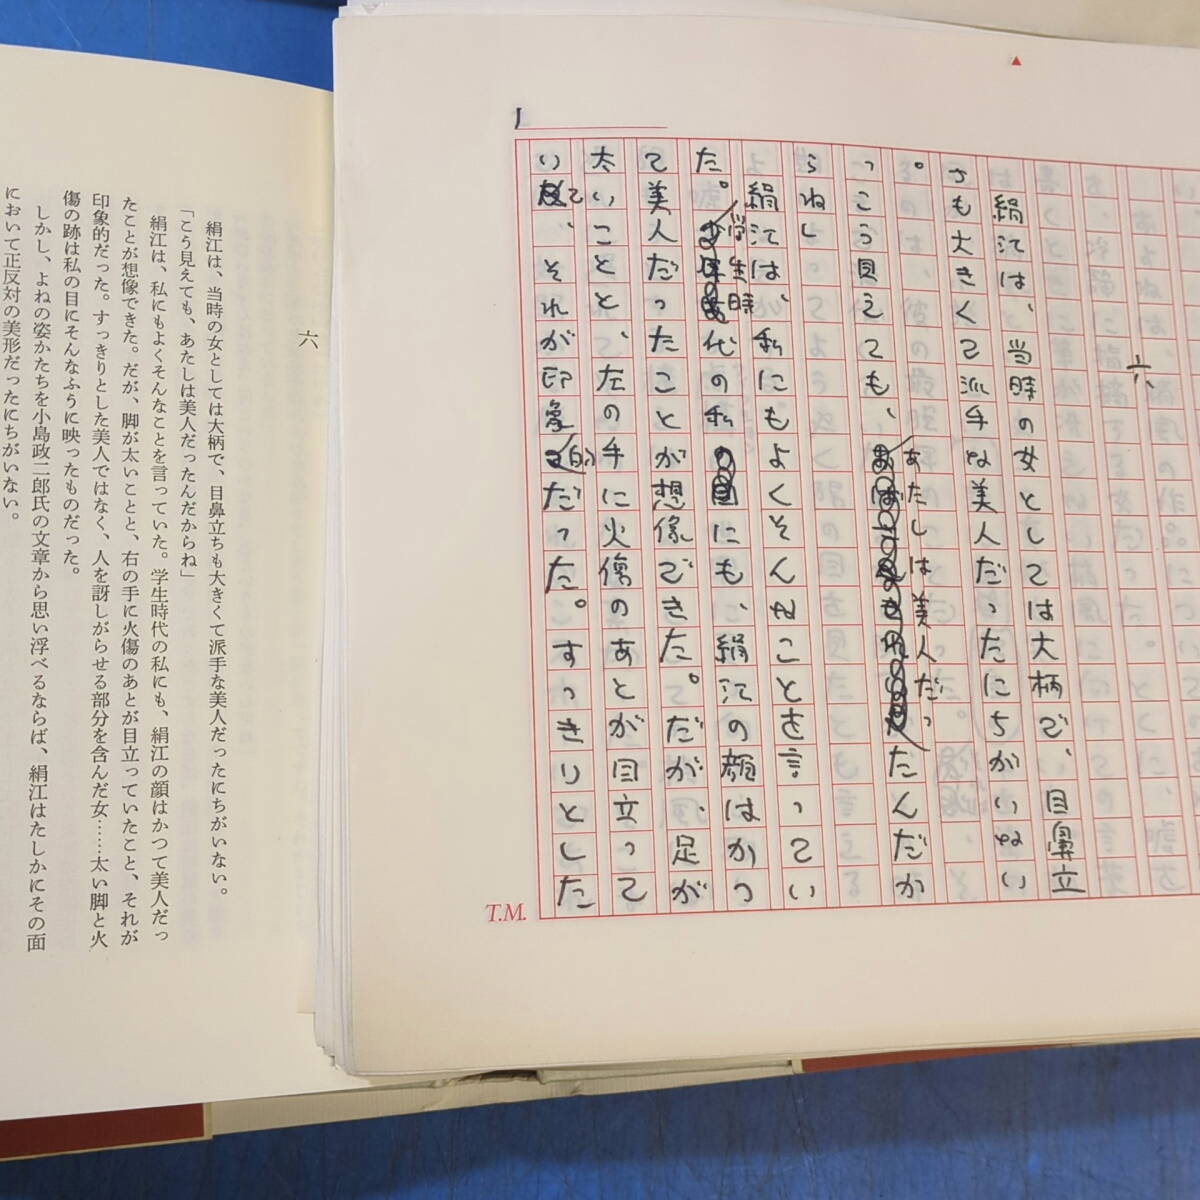 六
絹江は、当時の女としては大柄で、目鼻立
ちも大きくて派手な美人だったにちがいない
。
「こう見えても、あたしは美人だったんだか
らね」
絹江は、私にもよくそんなことを言ってい
た。学生時代の私にも、絹江の顔はかつ
て美人だったことが想像できた。だが、足が
太いことと、左の手に火傷のあとが目立って
いて、それが印象的だった。すっきりとした
T.M.
六
絹江は、当時の女としては大柄で、目鼻立ちも大きくて派手な美人だったにちがいない。
「こう見えても、あたしは美人だったんだからね」
絹江は、私にもよくそんなことを言っていた。学生時代の私にも、絹江の顔はかつて美人だっ
たことが想像できた。だが、脚が太いことと、右の手に火傷のあとが目立っていたこと、それが
印象的だった。すっきりとした美人ではなく、人を訝しがらせる部分を含んだ女……太い脚と火
傷の跡は私の目にそんなふうに映ったものだった。
しかし、よねの姿かたちを小島政二郎氏の文章から思い浮べるならば、絹江はたしかにその面
において正反対の美形だったにちがいない。